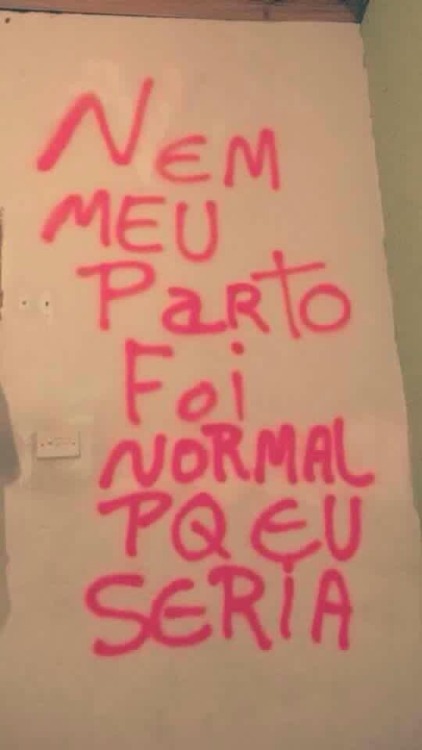 NEM
MEU
PaRTO
Foi
NORMAL
PQ EU
SERiA